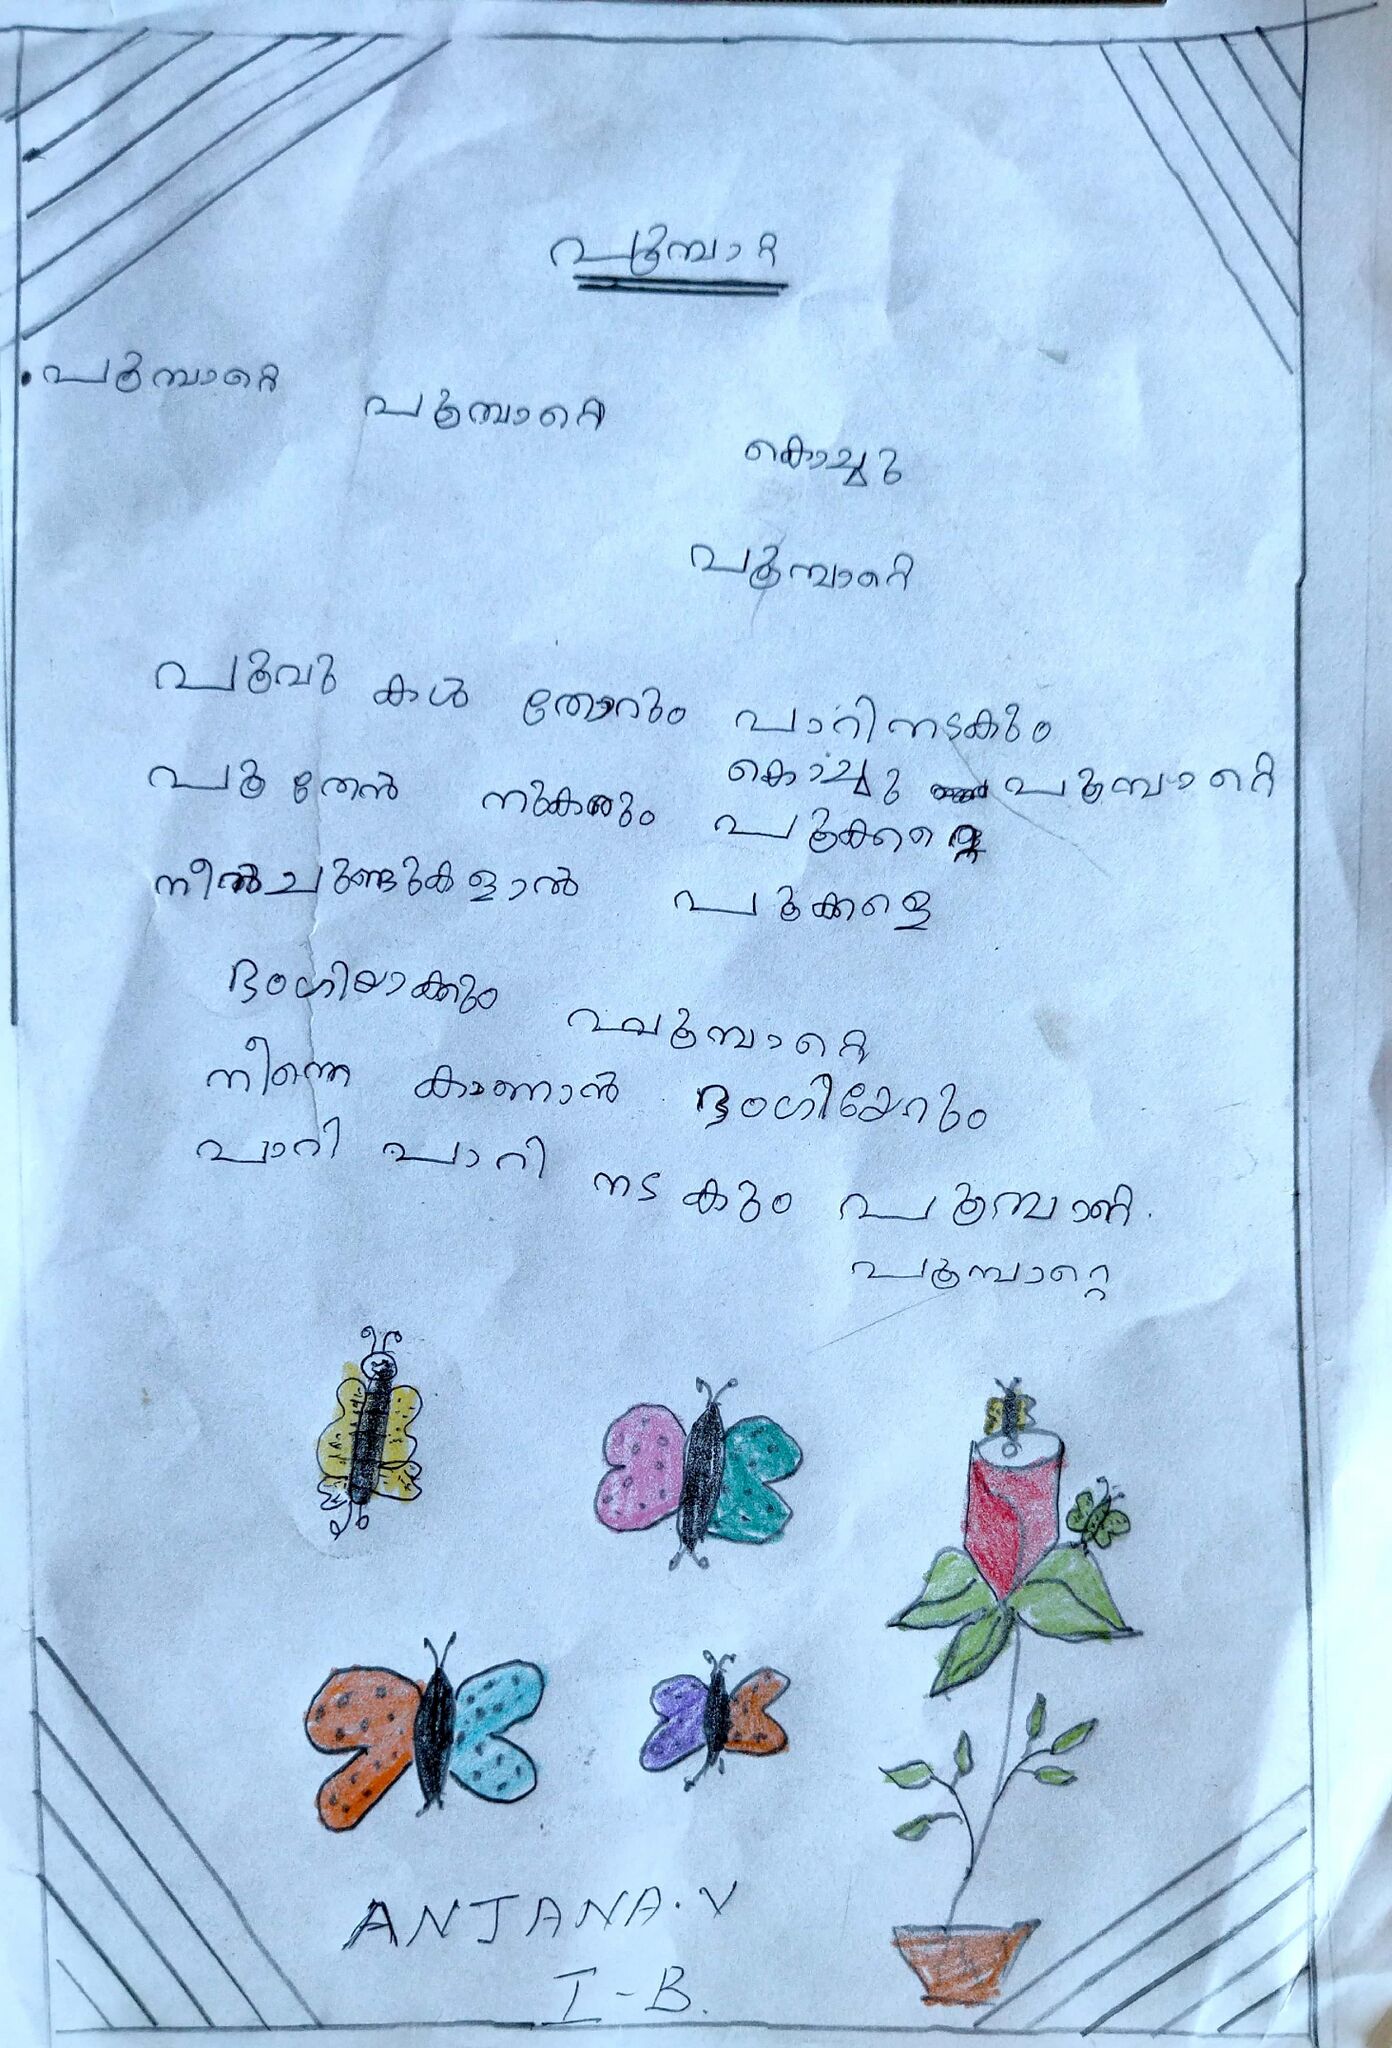 പൂമ്പാറ്റ
പൂമ്പാറ്റെ പൂമ്പാറ്റെ കൊച്ചു
പൂമ്പാറ്റെ
പൂവു കൾ തോറും പാറിനടകും
പൂ തേൻ നുകരും കൊച്ചു പൂമ്പാറ്റെ
പൂക്കളെ
നീൽചുണ്ടുകളാൽ പൂക്കളെ
ഭംഗിയാക്കും പൂമ്പാറ്റെ
നിന്നെ കാണാൻ ഭംഗിയേറും
പാറി പാറി നട കും പൂമ്പാറ്റെ
പൂമ്പാറ്റെ
ANJANA.V
I-B.